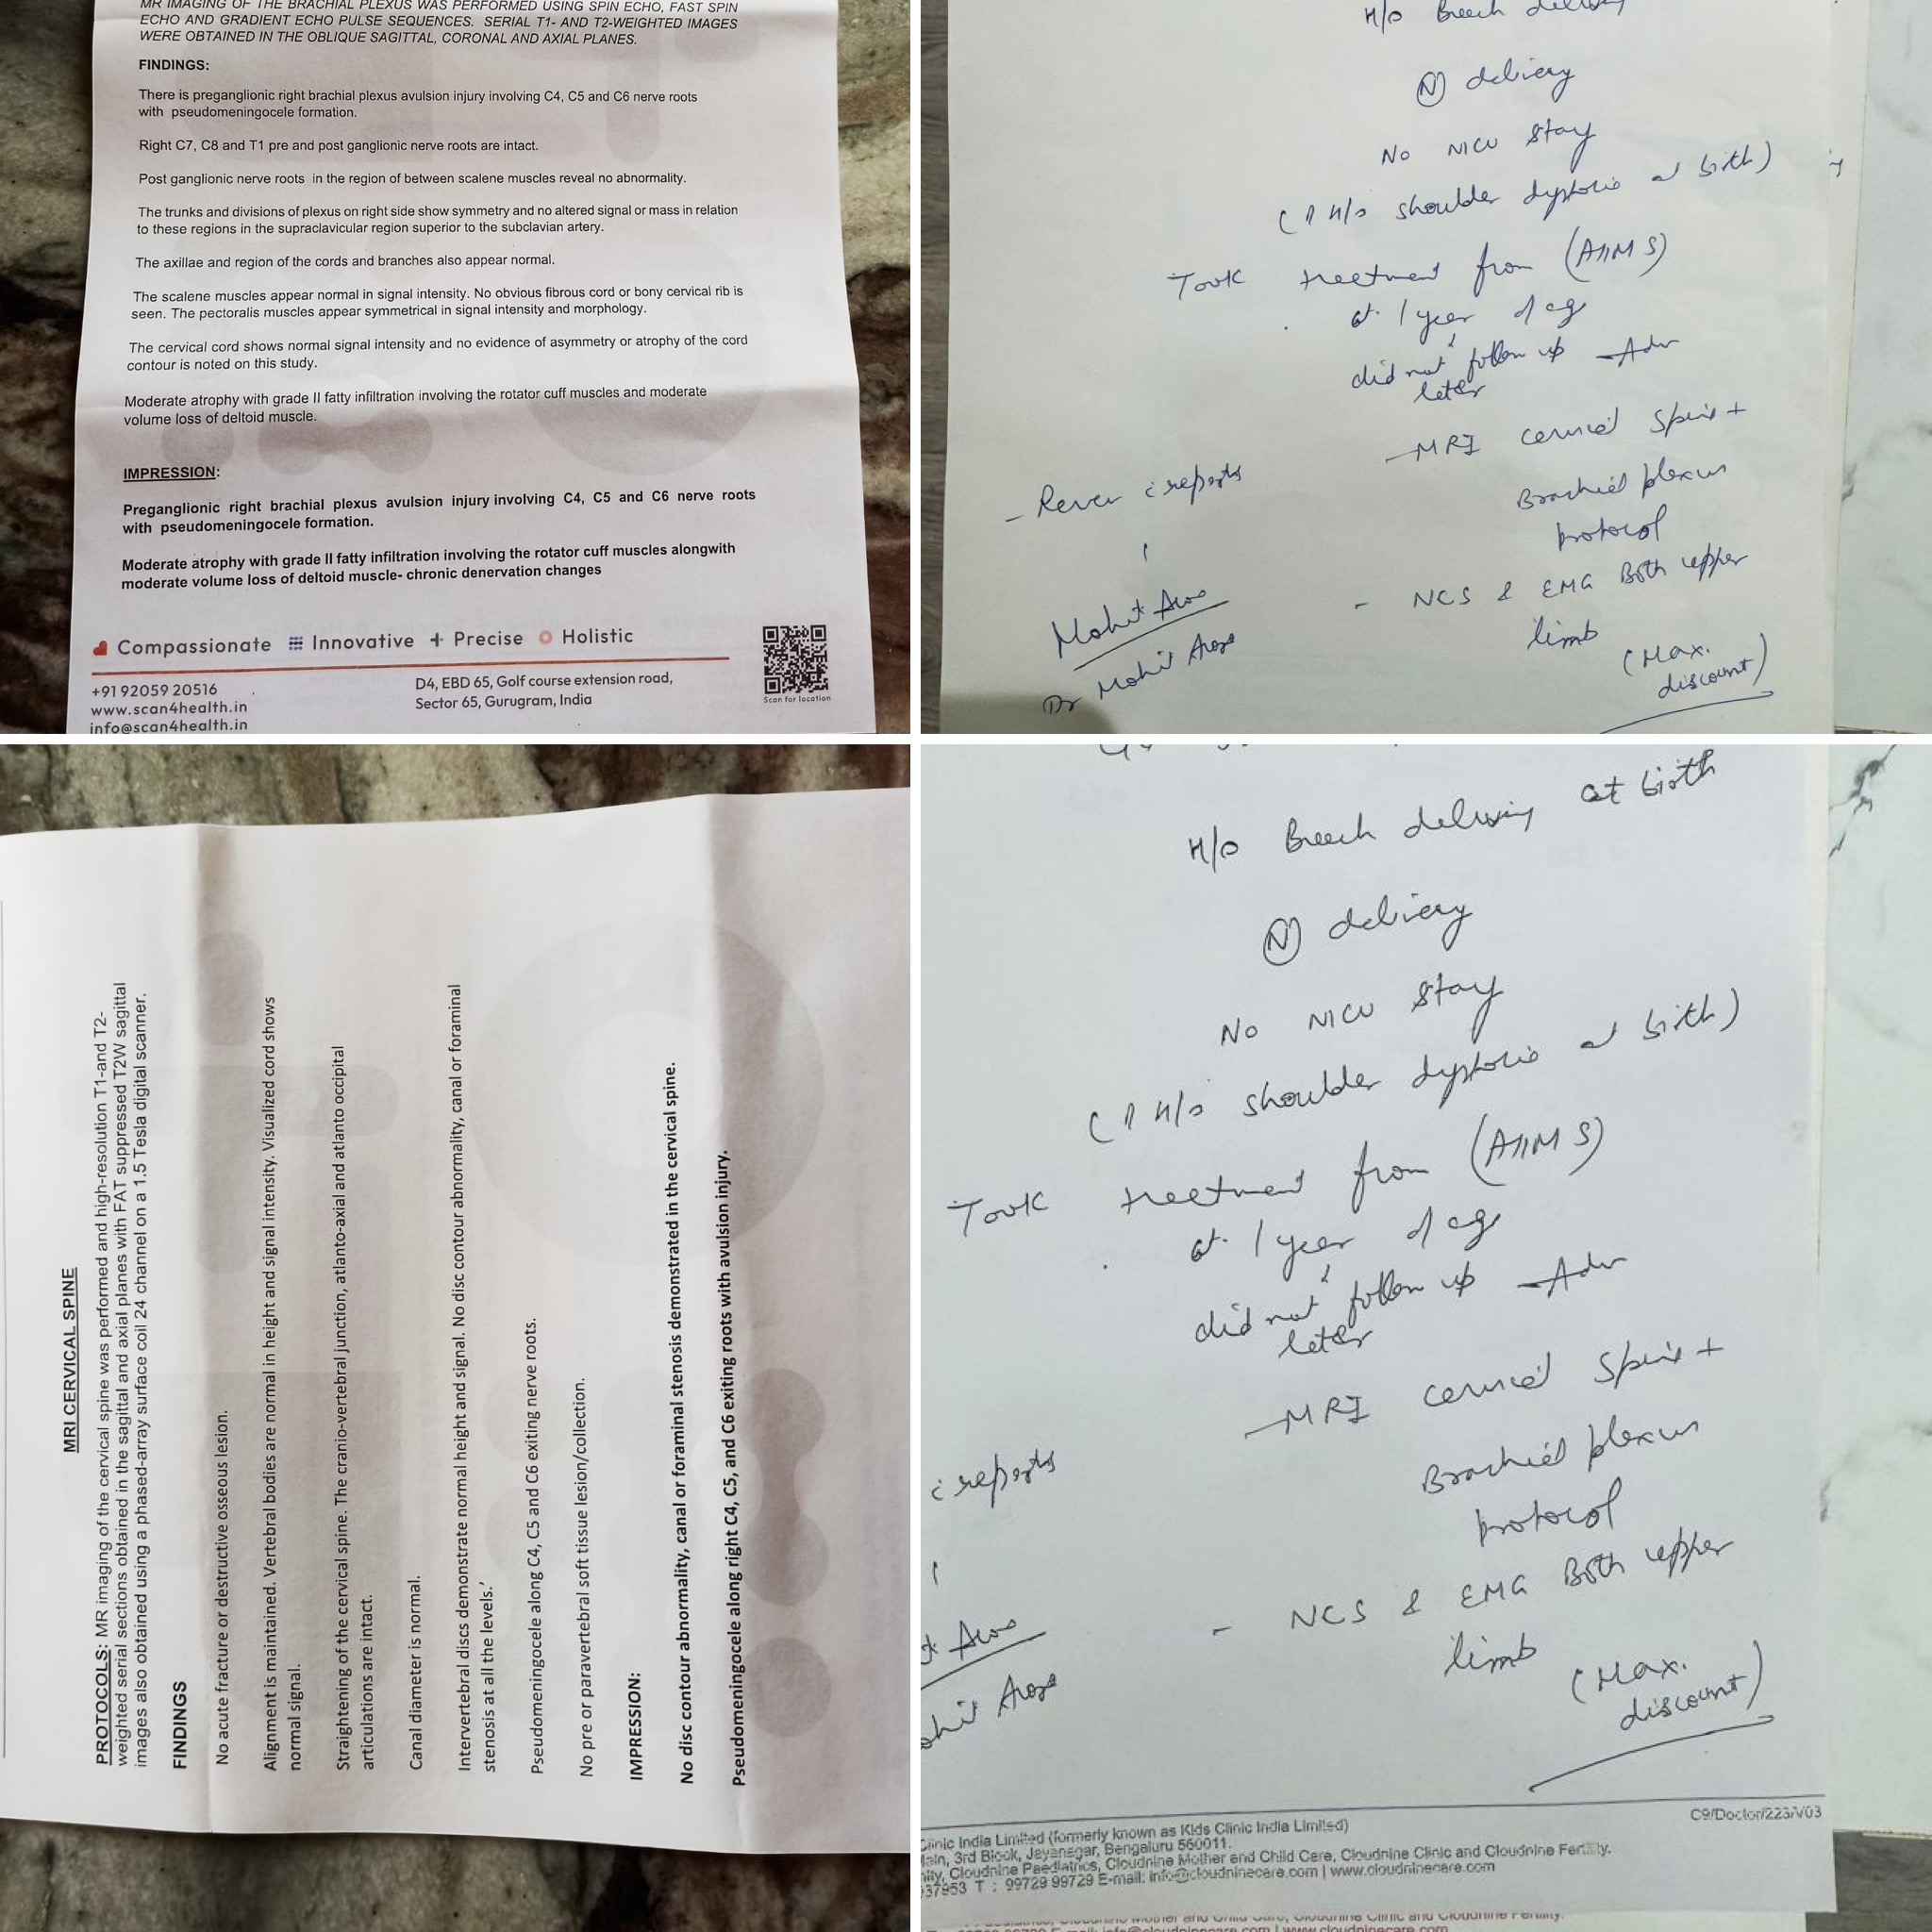 MR IMAGING OF THE BRACHIAL PLEXUS WAS PERFORMED USING SPIN ECHO, FAST SPIN
ECHO AND GRADIENT ECHO PULSE SEQUENCES. SERIAL T1- AND T2-WEIGHTED IMAGES
WERE OBTAINED IN THE OBLIQUE SAGITTAL, CORONAL AND AXIAL PLANES.
FINDINGS:
There is preganglionic right brachial plexus avulsion injury involving C4, C5 and C6 nerve roots
with pseudomeningocele formation.
Right C7, C8 and T1 pre and post ganglionic nerve roots are intact.
Post ganglionic nerve roots in the region of between scalene muscles reveal no abnormality.
The trunks and divisions of plexus on right side show symmetry and no altered signal or mass in relation
to these regions in the supraclavicular region superior to the subclavian artery.
The axillae and region of the cords and branches also appear normal.
The scalene muscles appear normal in signal intensity. No obvious fibrous cord or bony cervical rib is
seen. The pectoralis muscles appear symmetrical in signal intensity and morphology.
The cervical cord shows normal signal intensity and no evidence of asymmetry or atrophy of the cord
contour is noted on this study.
Moderate atrophy with grade II fatty infiltration involving the rotator cuff muscles and moderate
volume loss of deltoid muscle.
IMPRESSION:
Preganglionic right brachial plexus avulsion injury involving C4, C5 and C6 nerve roots
with pseudomeningocele formation.
Moderate atrophy with grade II fatty infiltration involving the rotator cuff muscles alongwith
moderate volume loss of deltoid muscle- chronic denervation changes
Compassionate Innovative Precise Holistic
+91 92059 20516
www.scan4health.in
info@scan4health.in
D4, EBD 65, Golf course extension road,
Sector 65, Gurugram, India
Scan for location
H/o Breech delivery
(N) delivery
No NICU stay
( H/o shoulder dystocia at birth)
Took treetment from (AIIMS)
at 1 year of age
did not follow up
later
Adv
- MRI cervical spine +
Brachial plexus
protocol
- NCS & EMG Both upper
limb
(Max.
discount)
- Review c reports
Mohit Arora
Dr Mohit Arora
MRI CERVICAL SPINE
PROTOCOLS: MR imaging of the cervical spine was performed and high-resolution T1-and T2-
weighted serial sections obtained in the sagittal and axial planes with FAT suppressed T2W sagittal
images also obtained using a phased-array surface coil 24 channel on a 1.5 Tesla digital scanner.
FINDINGS
No acute fracture or destructive osseous lesion.
Alignment is maintained. Vertebral bodies are normal in height and signal intensity. Visualized cord shows
normal signal.
Straightening of the cervical spine. The cranio-vertebral junction, atlanto-axial and atlanto occipital
articulations are intact.
Canal diameter is normal.
Intervertebral discs demonstrate normal height and signal. No disc contour abnormality, canal or foraminal
stenosis at all the levels.'
Pseudomeningocele along C4, C5 and C6 exiting nerve roots.
No pre or paravertebral soft tissue lesion/collection.
IMPRESSION:
No disc contour abnormality, canal or foraminal stenosis demonstrated in the cervical spine.
Pseudomeningocele along right C4, C5, and C6 exiting roots with avulsion injury.
H/o Breech delivery at birth
(N) delivery
No NICU stay
( H/o shoulder dystocia at birth)
Took treetment from (AIIMS)
at 1 year of age
did not follow up
later
Adv
- MRI cervical spine +
Brachial plexus
protocol
c reports
- NCS & EMG Both upper
limb
(Max.
discount)
C9/Doctor/223/V03
Clinic India Limited (formerly known as Kids Clinic India Limited)
Main, 3rd Block, Jayanagar, Bengaluru 560011.
Cloudnine Paediatrics, Cloudnine Mother and Child Care, Cloudnine Clinic and Cloudnine Fertility.
37953 T : 99729 99729 E-mail: info@cloudninecare.com | www.cloudninecare.com